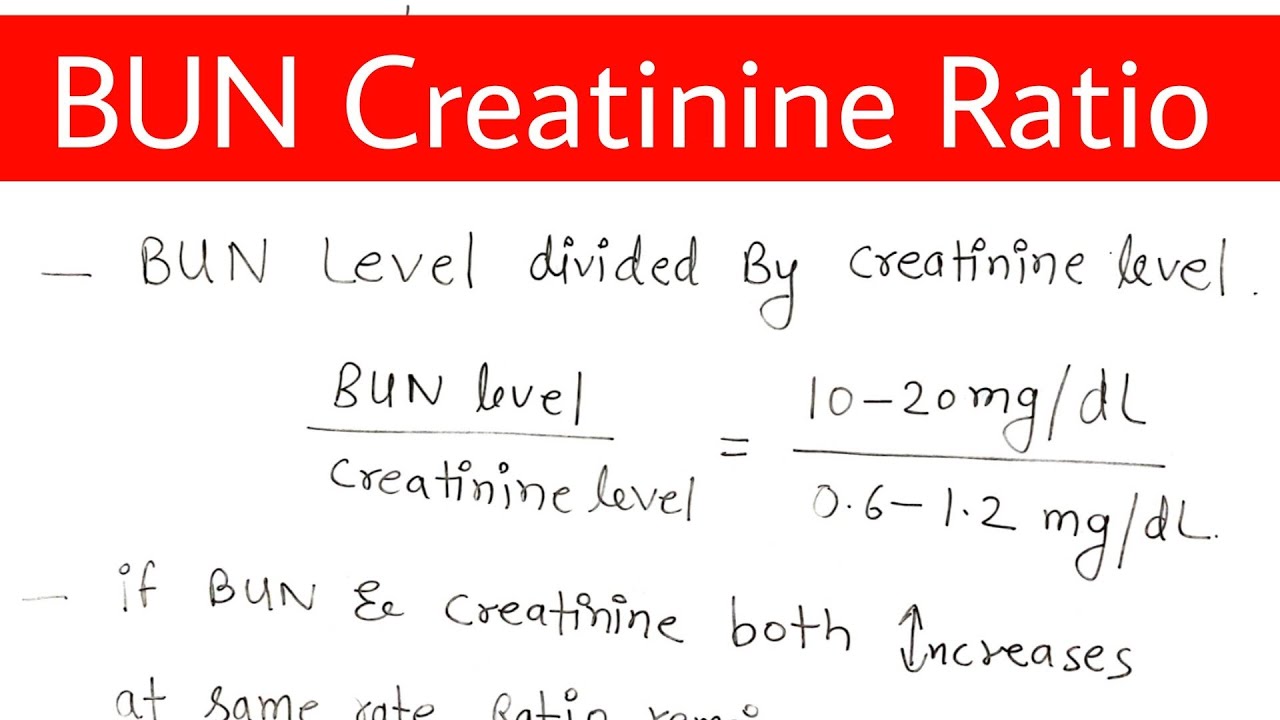 BUN Creatinine Ratio
— BUN Level divided By creatinine level.
BUN level
creatinine level
=
10-20mg/dL
0.6-1.2 mg/dL.
— if BUN & creatinine both ↑Increases
at same rate Ratio